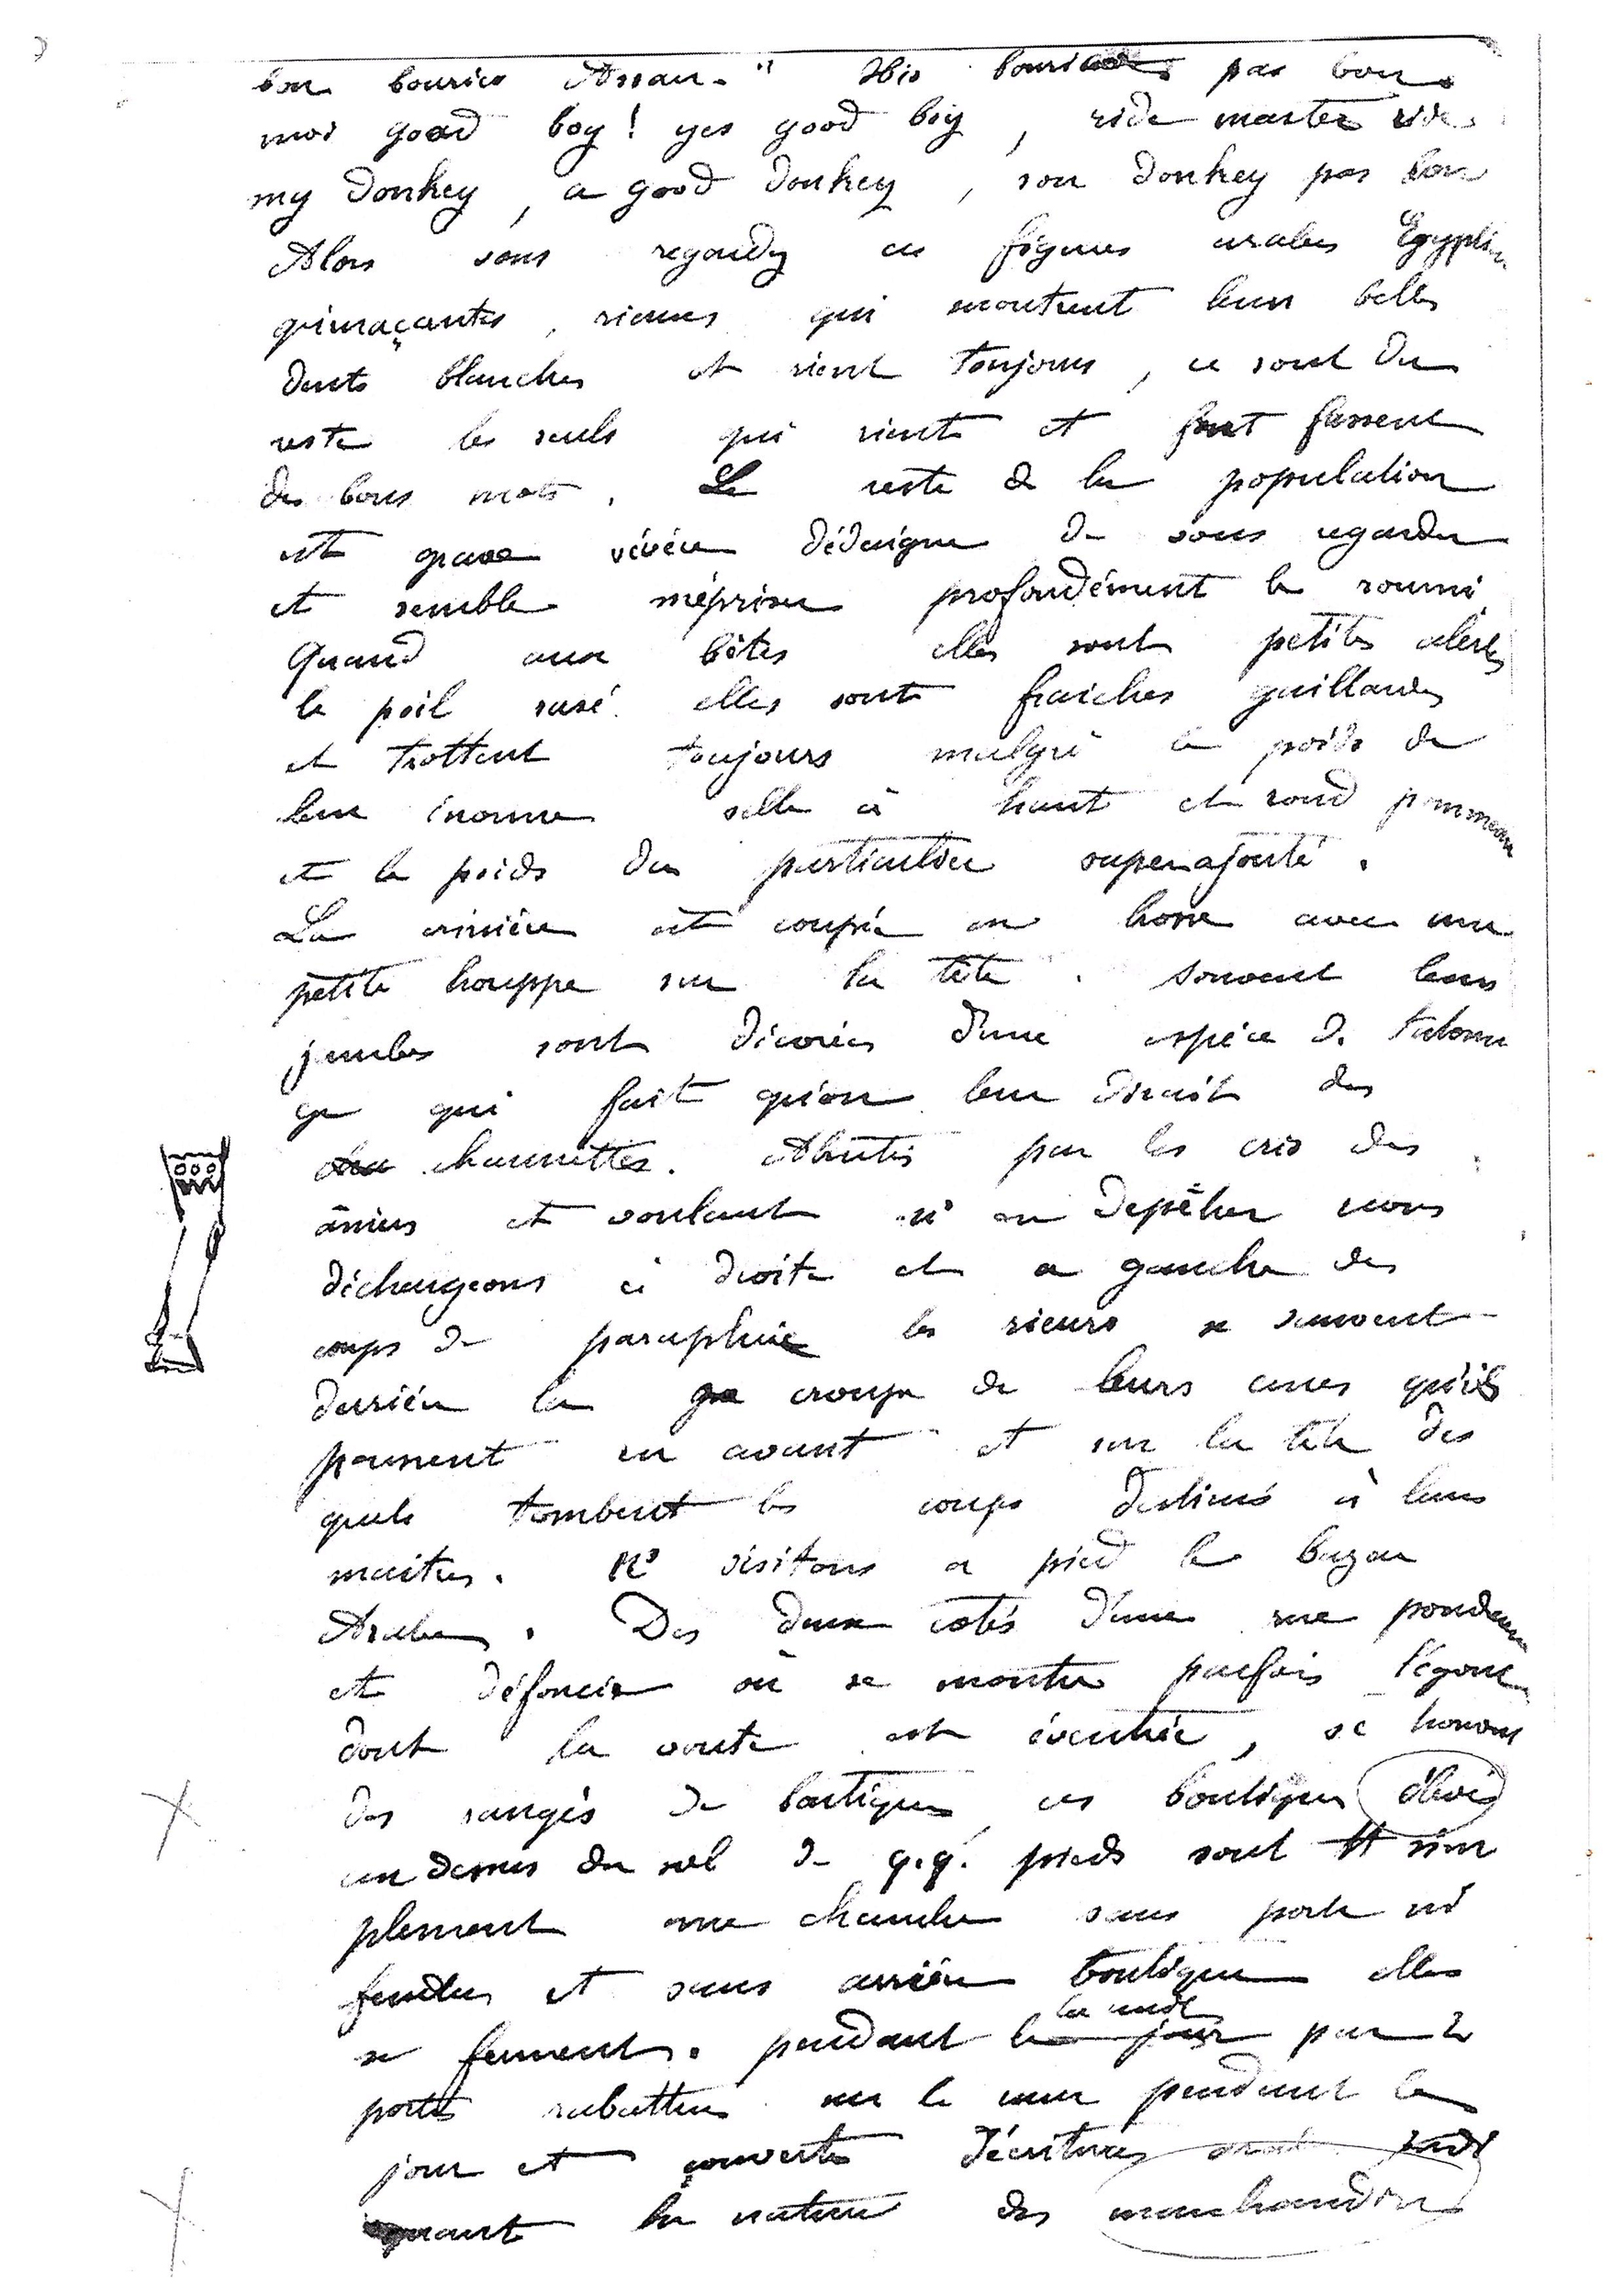 bon bourico Assau-" His bouricos pas bon
moi good boy! yes good boy, ride master ride
my donkey, a good donkey, son donkey pas bon
Alors vous regardez ces figures arabes Egyptien
grimaçantes, rieuses qui montrent leur belles
dents blanches et rient toujours, ce sont du
reste les seuls qui rient et font fassent
des bons mots. Le reste de la population
est grave sévère dédaigne de vous regarder
et semble mépriser profondément le roumi
Quand aux bêtes elles sont petites alertes
le poil rasé elles sont fraiches gaillardes
et trottent toujours malgré le poids de
leur énorme selle à haut et rond pommeau
et le poids du particulier superajouté.
La crinière est coupée en brosse avec une
petite houppe sur la tête. Souvent leurs
jambes sont décorées d'une espèce de tatoua
ge qui fait qu'on leur dirait des
chaussettes. Abrutis par les cris des
âniers et voulant n' en depêtrer nous
déchargeons à droite et a gauche des
coups de parapluie les rieurs se sauvent
derrière la croupe de leurs anes qu'ils
poussent en avant et sur la tête des
quels tombent les coups destinés à leurs
maitres. Ns visitons a pied le bazar
Arabe. Des deux cotés d'une rue poudreuse
et défoncée où se montre parfois l'égout
dont la voute est éventrée, se trouvent
des rangés de boutiques ces boutiques élevés
au dessus du sol de q.q. pieds sont sim
plement une chambre sans porte ni
fenêtres et sans arrière boutique elles
se ferment. pendant le jour la nuit par 2
portes rabattues sur le mur pendant le
jour et couvertes d'écritures indi
quant la nature des marchandises